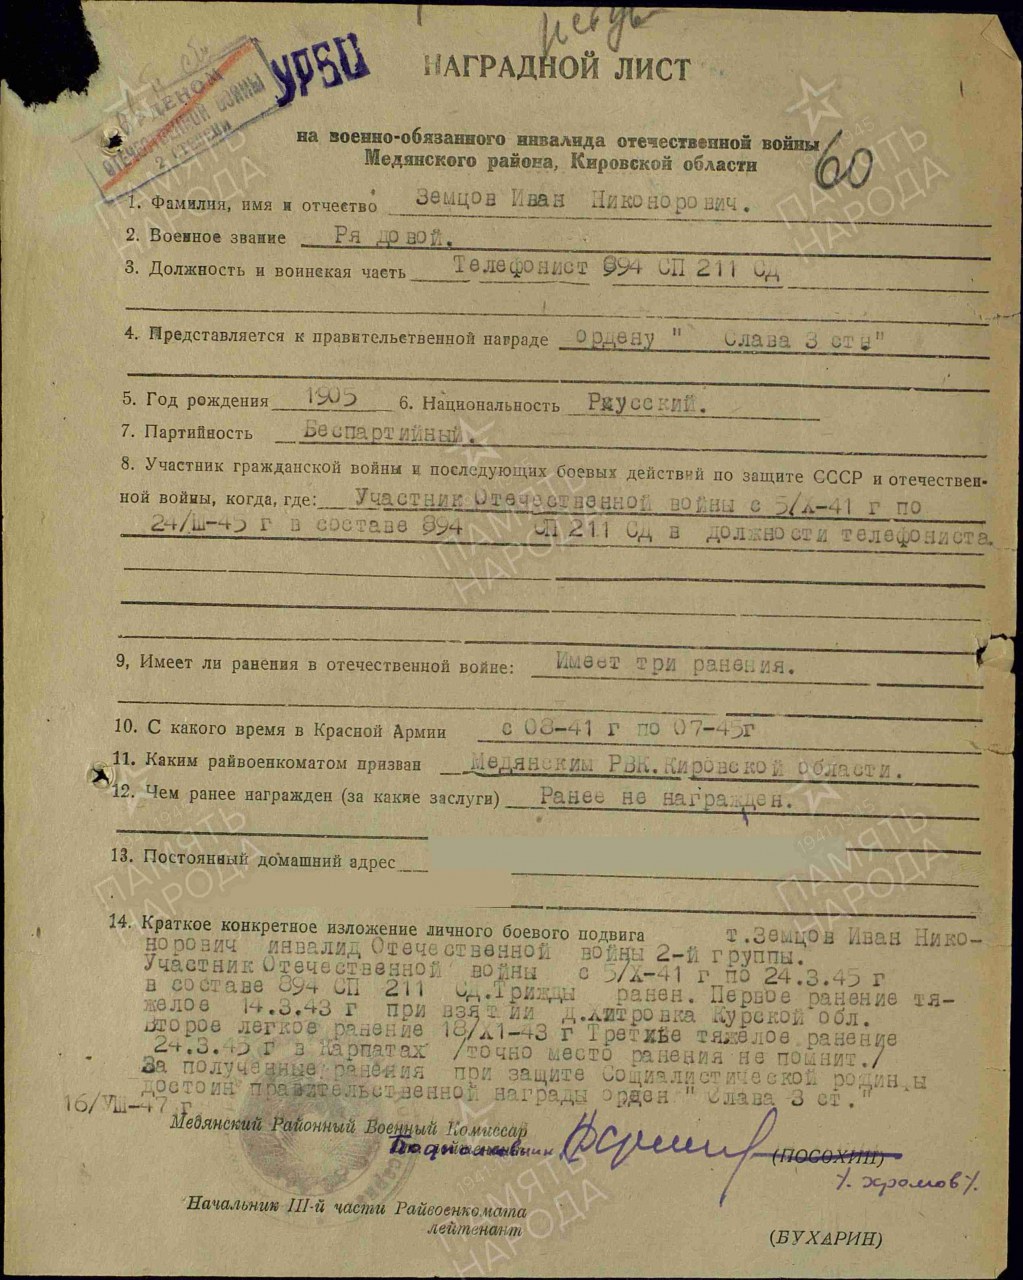 УРБД
НАГРАДНОЙ ЛИСТ
ОРДЕНОМ
ОТЕЧЕСТВЕННОЙ ВОЙНЫ
2 СТЕПЕНИ
на военно-обязанного инвалида отечественной войны
Медянского района, Кировской области
60
1. Фамилия, имя и отчество Земцов Иван Никонорович.
2. Военное звание Ря довой.
3. Должность и воинская часть Телефонист 894 СП 211 Сд
4. Представляется к правительственной награде ордену " Слава 3 стп"
5. Год рождения 1905 6. Национальность Русский.
7. Партийность Беспартийный.
8. Участник гражданской войны и последующих боевых действий по защите СССР и отечествен-
ной войны, когда, где: Участник Отечественной войны с 5/X-41 г по
24/Ш-45 г в составе 894 СП 211 Сд в должности телефониста.
9, Имеет ли ранения в отечественной войне: Имеет три ранения.
10. С какого время в Красной Армии с 08-41 г по 07-45г
11. Каким райвоенкоматом призван Медянским РВК.Кировской области.
12. Чем ранее награжден (за какие заслуги) Ранее не награжден.
13. Постоянный домашний адрес
14. Краткое конкретное изложение личного боевого подвига т.Земцов Иван Нико-
норович инвалид Отечественной войны 2-й группы.
Участник Отечественной войны с 5/X-41 г по 24.3.45 г
в составе 894 СП 211 Сд.Трижды ранен. Первое ранение тя-
желое 14.3.43 г при взятии д.Хитровка Курской обл.
Второе легкое ранение 18/X1-43 г Третье тяжелое ранение
24.3.45 г в Карпатах /точно место ранения не помнит./
За полученные ранения при защите Социалистической родины
достоин правительственной награды орден " Слава 3 ст."
16/УШ-47 г.
Медянский Районный Военный Комиссар
(ПОСОХИН)
/. храмов /.
Начальник III-й части Райвоенкомата
лейтенант
(БУХАРИН)
ПАМЯТЬ
НАРОДА